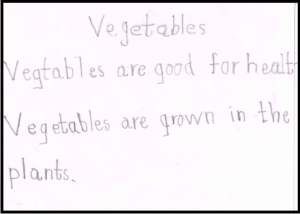 Vegetables
Vegtables are good for healt
Vegetables are grown in the
plants.